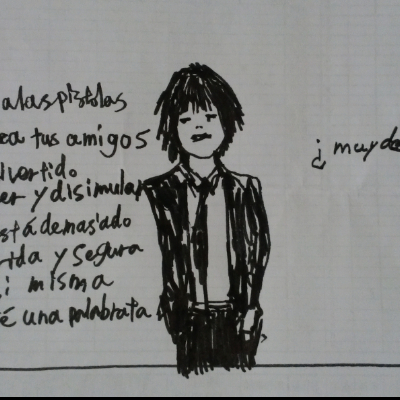 alaspistolas
ea tus amigos
divertido
er y disimular
está demasiado
rida y segura
mi misma
é una palabrata
¿ muyde